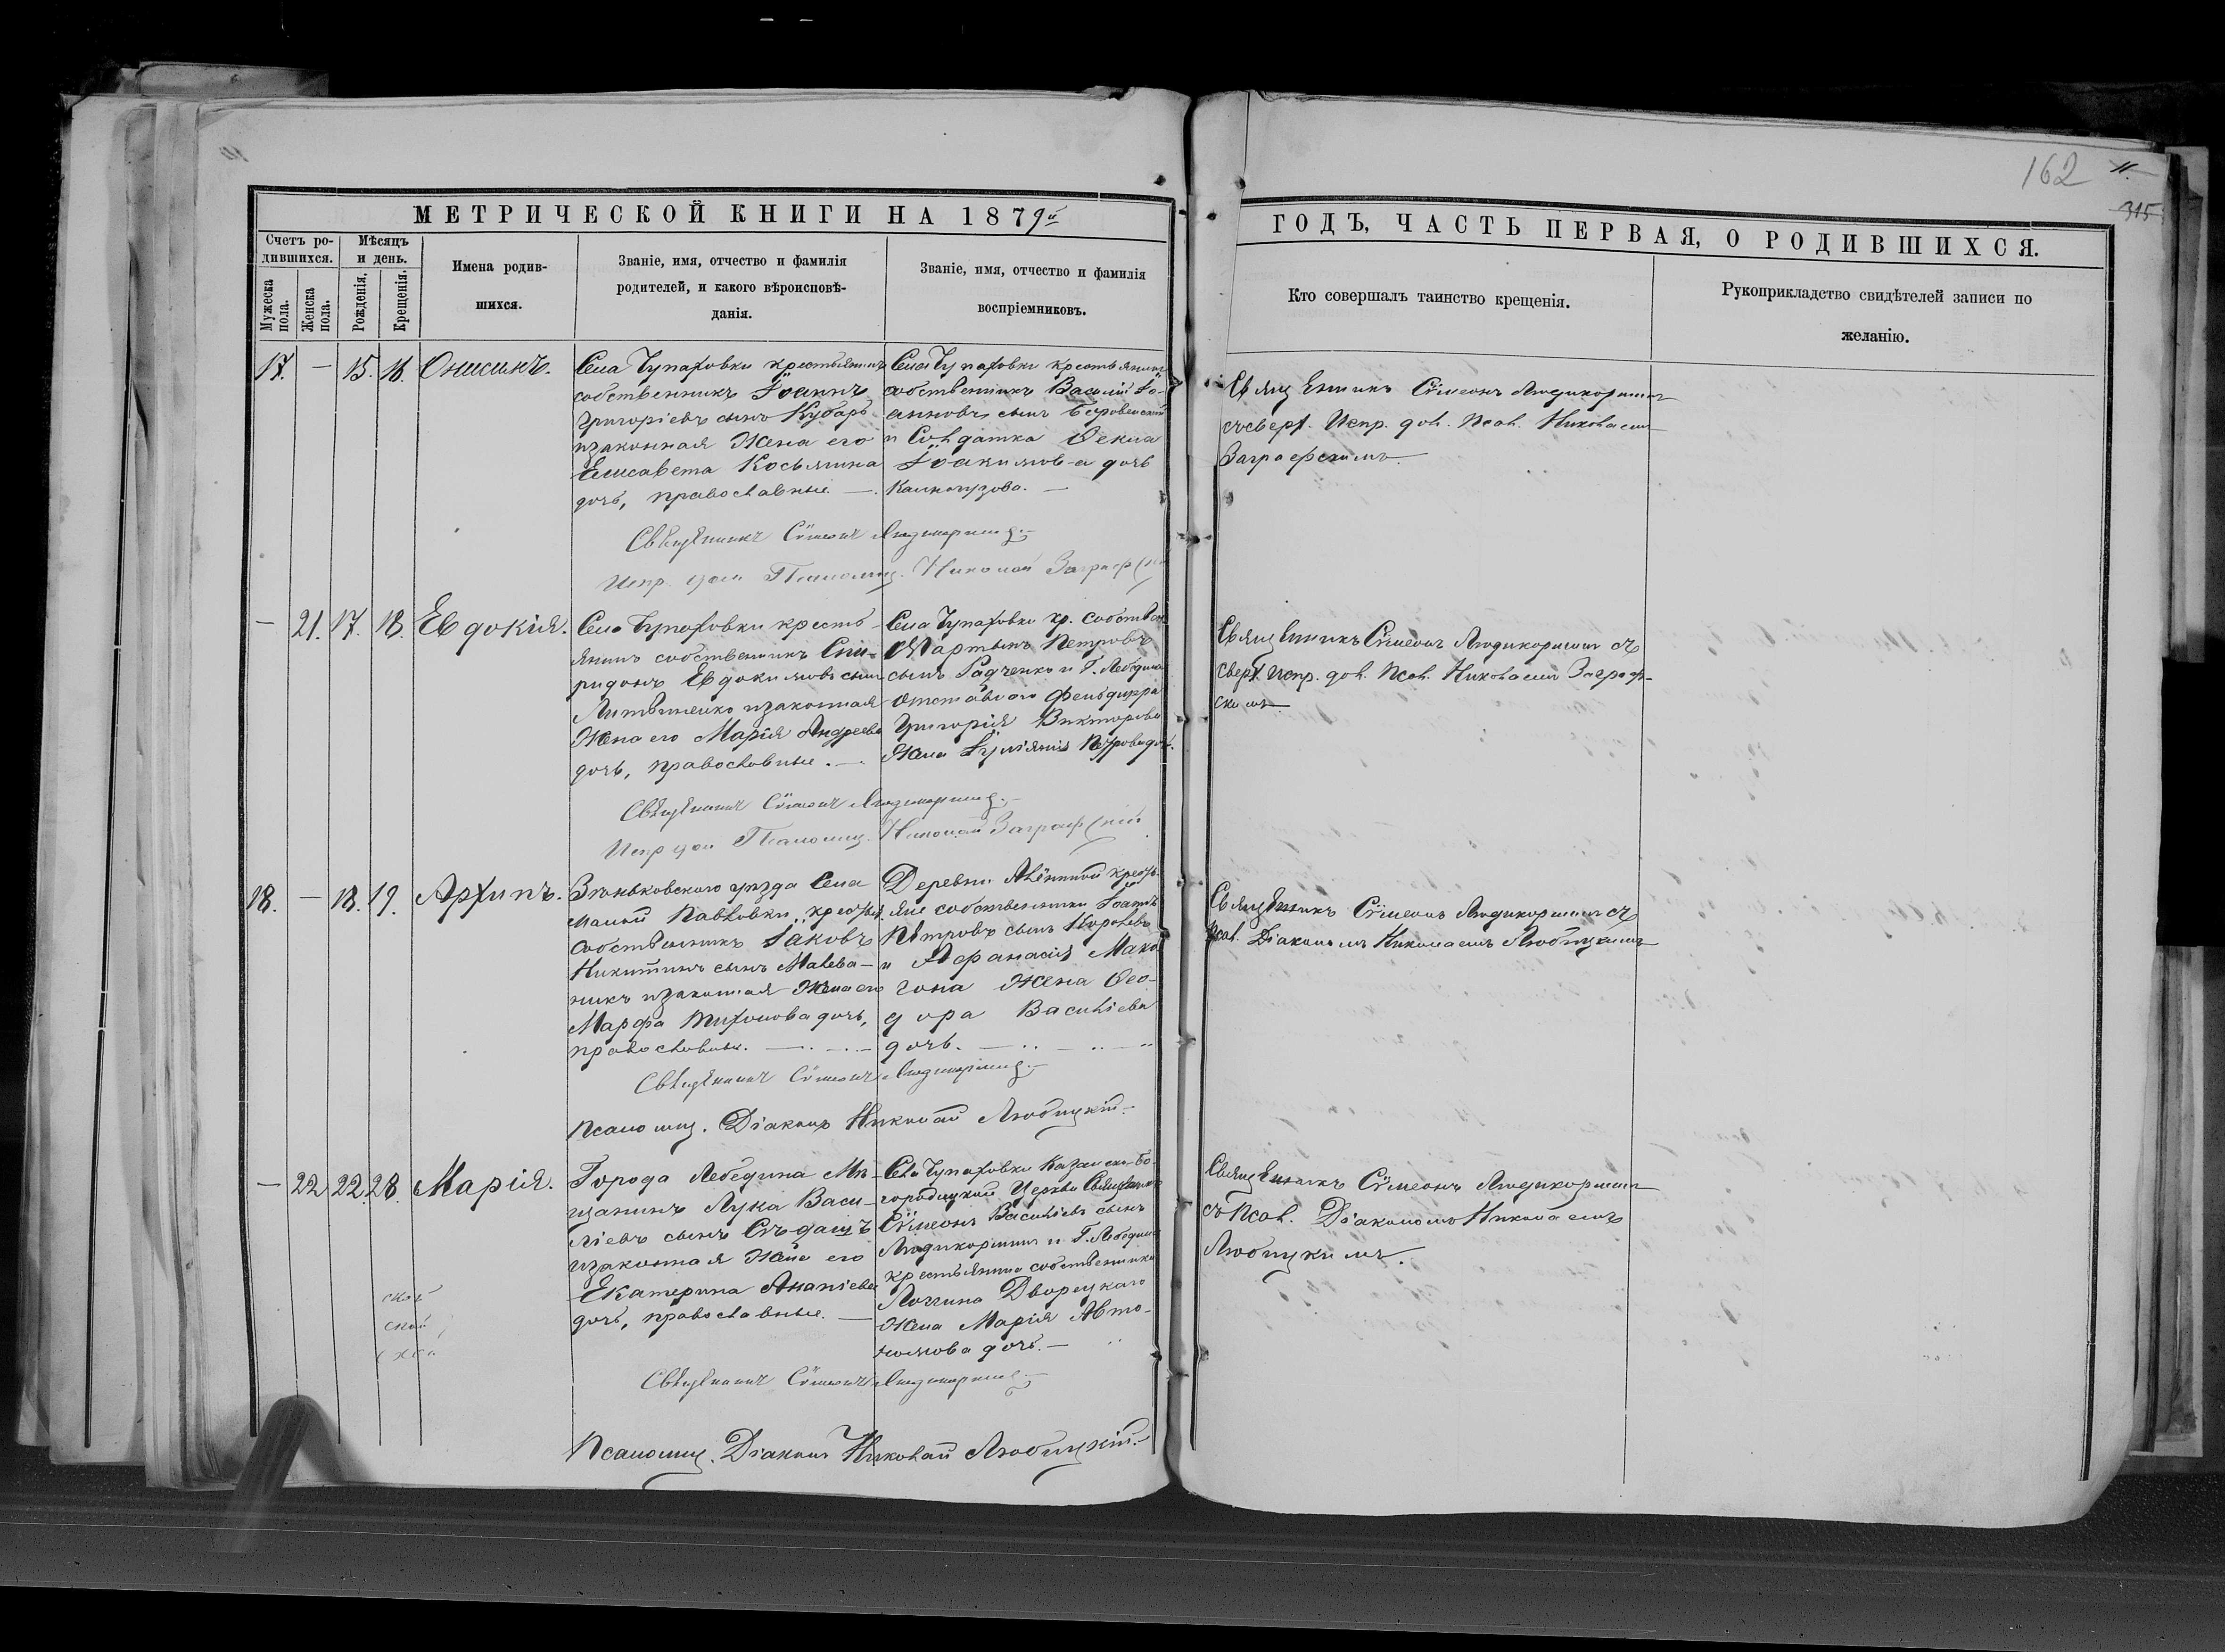 162
11.
315
МЕТРИЧЕСКОЙ КНИГИ НА 1879й
ГОДЪ, ЧАСТЬ ПЕРВАЯ, О РОДИВШИХСЯ.
Счетъ ро-
дившихся.
Мужеска пола.
Женска пола.
Мѣсяцъ
и день.
Рожденія.
Крещенія.
Имена родив-
шихся.
Званіе, имя, отчество и фамилія
родителей, и какого вѣроисповѣ-
данія.
Званіе, имя, отчество и фамилія
воспріемниковъ.
Кто совершалъ таинство крещенія.
Рукоприкладство свидѣтелей записи по
желанію.
17. — 15. 16. Онисимъ.
Села Чупаховки крестьянинъ
собственникъ Іоаннъ
Григоріевъ сынъ Кубарь
изаконная жена его
Елисавета Косьмина
дочь, православные. —
Села Чупаховки крестьянинъ
собственникъ Василій Іо-
анновъ сынъ
и Солдатка Ѳекла
Іоакимова дочь
Священникъ Сѵмеонъ
съсверх. Испр. дол. Псал. Николаемъ
Заграфскимъ.
Священникъ Сѵмеонъ
Испр. дол. Псаломщ. Николай Заграфскій
— 21. 17. 18. Евдокія.
Села Чупаховки кресть-
янинъ собственникъ Спи-
ридонъ Евдокимовъ сынъ
Литвиненко изаконная
жена его Марія Андреева
дочь, православные. —
Села Чупаховки кр. собств.
Мартынъ Петровъ
сынъ Радченко и Г. Лебедина
отставнаго фельдшера
Григорія Викторова
жена Іуліанія Петрова доч.
Священникъ Сѵмеонъ съ
сверх. испр. дол. Псал. Николаемъ Заграф-
скимъ
Священникъ Сѵмеонъ
Испр дол Псаломщ. Николай Заграфскій
18. — 18. 19. Архипъ.
Зѣньковского уѣзда Села
Малой Павловки, крестья.
собственникъ Іаковъ
Никитинъ сынъ Малева-
никъ изаконная жена его
Марфа Тихонова дочь,
православные. —
Деревни Алёниной кресть-
яне собственники Іоаннъ
Петровъ сынъ Королевъ
и Аѳанасія Мако
гона жена Ѳео-
дора Василіева
дочь. —
Священникъ Сѵмеонъ съ
Псал. Діакономъ Николаемъ Любицкимъ
Священникъ Сѵмеонъ
Псаломщ. Діаконъ Николай Любицкій
— 22 22. 28. Марія.
Города Лебедина Мѣ-
щанинъ Лука Васи-
ліевъ сынъ
изаконная жена его
Екатерина Ананіева
дочь, православные. —
Села Чупаховки Казанско-Бо-
городицкой Церкви Священникъ
Сѵмеонъ Василіевъ сынъ
и Г. Лебедина
крестьянина собственника
Логгина Дворецкаго
жена Марія Авто-
номова дочь. —
Священникъ Сѵмеонъ
съ Псал. Діакономъ Николаемъ
Любицкимъ.
Священникъ Сѵмеонъ
Псаломщ. Діаконъ Николай Любицкій